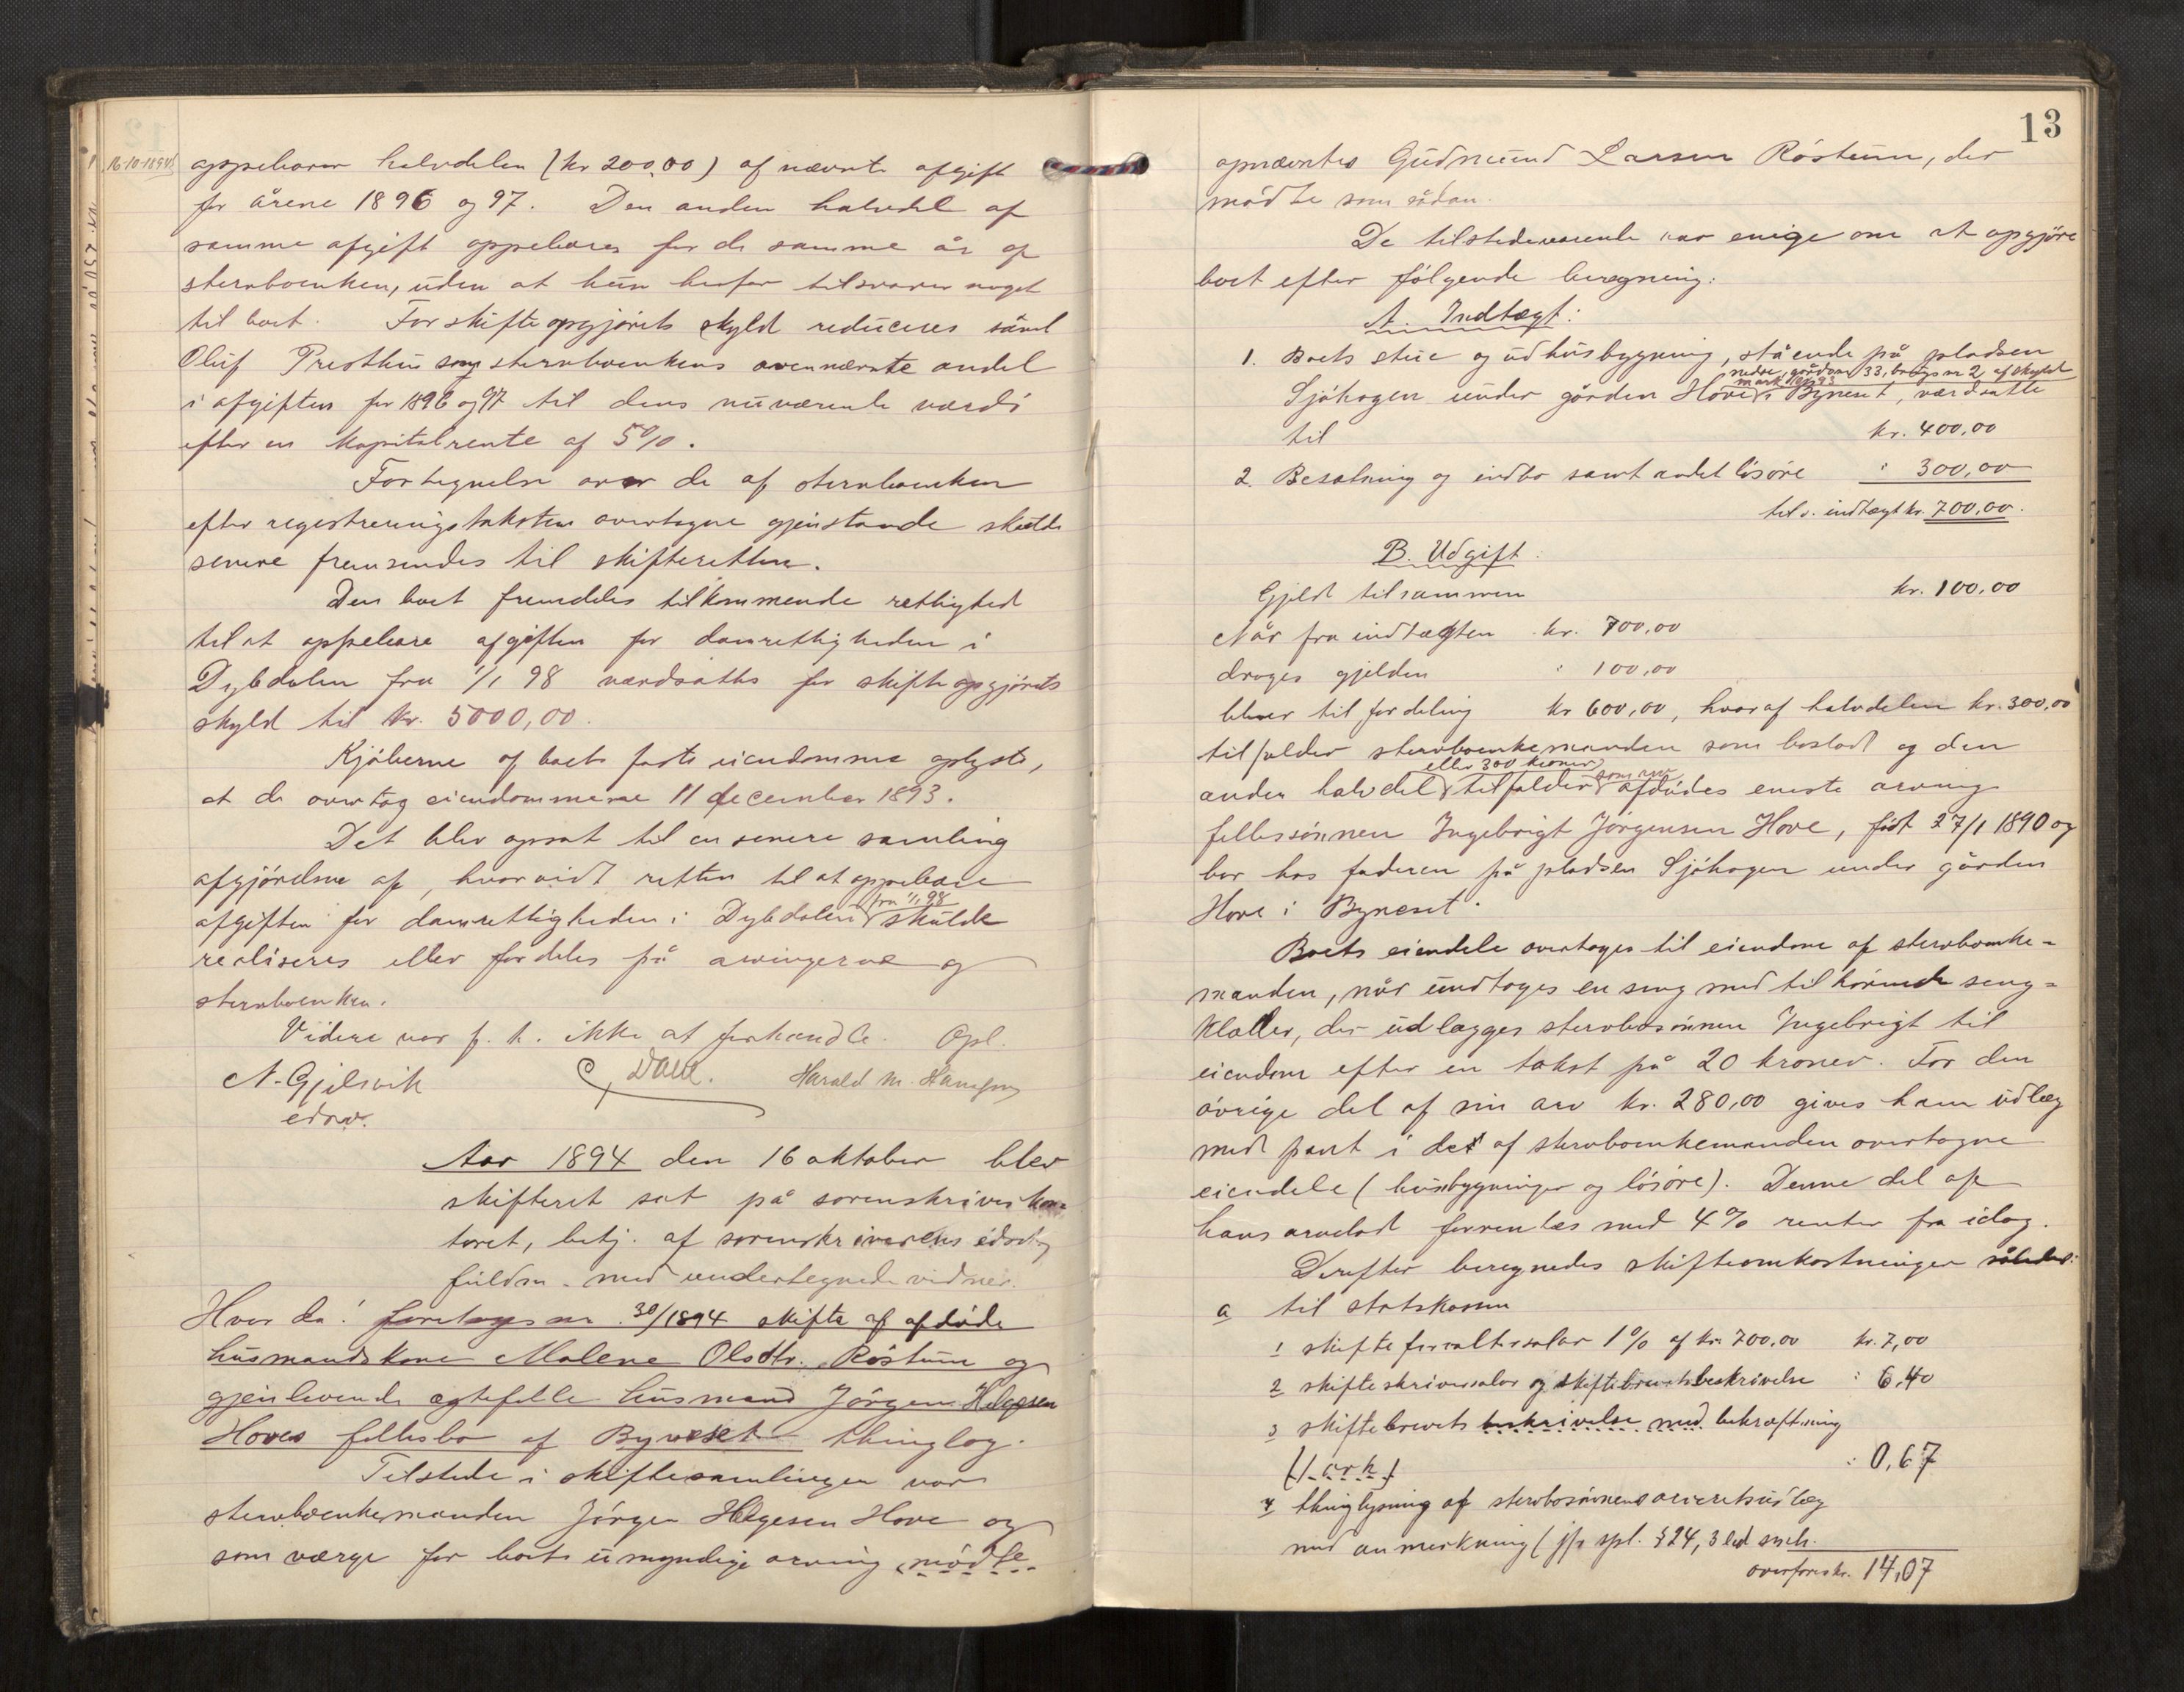 16-10-1894
oppebærer halvdelen (kr 200,00) af nævnte afgift
for årene 1896 og 97. Den anden halvdel af
samme afgift oppebæres for de samme år af
stervboenken, uden at hun herfor tilsvarer noget
til boet. For skifteopgjörets skyld reduceres såvel
Oluf Presthus som stervboenkens ovennævnte andel
i afgiften for 1896 og 97 til dens nuværende værdi
efter en kapitalrente af 5%.
Fortegnelse over de af stervboenken
efter registreringstaksten overtagne gjenstande skulde
senere fremsendes til skifteretten.
Den boet fremdeles tilkommende rettighed
til at oppebære afgiften for damrettigheden i
Dybdalen fra 1/1 98 værdsattes for skifteopgjörets
skyld til kr. 5000,00.
Kjöberne af boets faste eiendomme oplyste,
at de overtog eiendommene 11 december 1893.
Det blev opsat til en senere samling
afgjörelsen af, hvorvidt retten til at oppebære
fra 1/1 98
afgiften for damrettigheden i Dybdalen skulde
realiseres eller fordeles på arvingerne og
stervboenken.
Videre var p. t. ikke at forhandle. Opl.
N. Gjelsvik Harald M. Hansen
edsv.
Aar 1894 den 16 oktober blev
skifteret sat på sorenskriverkon=
toret, betj. af sorenskriverens edsv.
fuldm. med undertegnede vidner.
Hvor da: foretoges no. 30/1894 skifte af afdöde
husmandskone Malene Olsdtr. Röstum og
gjenlevende ægtefelle husmand Jörgen Helgesen
Hoves fellesbo af Bynesset thinglag.
Tilstede i skiftesamlingen var
stervboenkemanden Jörgen Helgesen Hove og
som værge for boets umyndige arving mödte
13
opnævntes Gudmund Larsen Röstum, der
mödte som sådan.
De tilstedeværende var enige om at opgjöre
boet efter fölgende beregning:
A. Indtægt:
1. Boets stue og udhusbygning, stående på pladsen
nedre, gårdsno 33, brugs nr 2 af skyld
mark
Sjöhagen under gården Hove i Byneset, værdsatte
til kr. 400,00
2. Besætning og indbo samt andet lösöre : 300,00
tils. indtægt kr. 700,00.
B. Udgift:
Gjeld tilsammen kr. 100,00
Når fra indtægten kr. 700,00
drages gjelden : 100,00
bliver til fordeling kr 600,00, hvoraf halvdelen kr. 300,00
tilfalder stervboenkemanden som boslod og den
eller 300 kroner som arv
anden halvdel tilfalder afdödes eneste arving
fellessönnen Ingebrigt Jörgensen Hove, födt 27/1 1890 og
bor hos faderen på pladsen Sjöhagen under gården
Hove i Byneset.
Boets eiendele overtages til eiendom af stervboenke=
manden, når undtages en seng med tilhörende seng=
klæder, der udlægges stervbosönnen Ingebrigt til
eiendom efter en takst på 20 kroner. For den
övrige del af sin arv kr. 280,00 gives ham udlæg
med pant i det af stervboenkemanden overtagne
eiendele (husbygninger og lösöre). Denne del af
hans arvelod forrentes med 4% renter fra idag.
Derefter beregnedes skifteomkostningen således:
a til statskassen
1 skifteforvaltersalær 1% af kr. 700,00 kr. 7,00
2 skifteskriversalær og skiftebrevets beskrivelse : 6,40
3 skiftebrevets beskrivelse med bekræftning
(1 ark) : 0,67
4 thinglysning af stervbosönnens arveretsudlæg
med anmerkning (jfr spl. § 24, 3 led smh.
overföres kr. 14,07